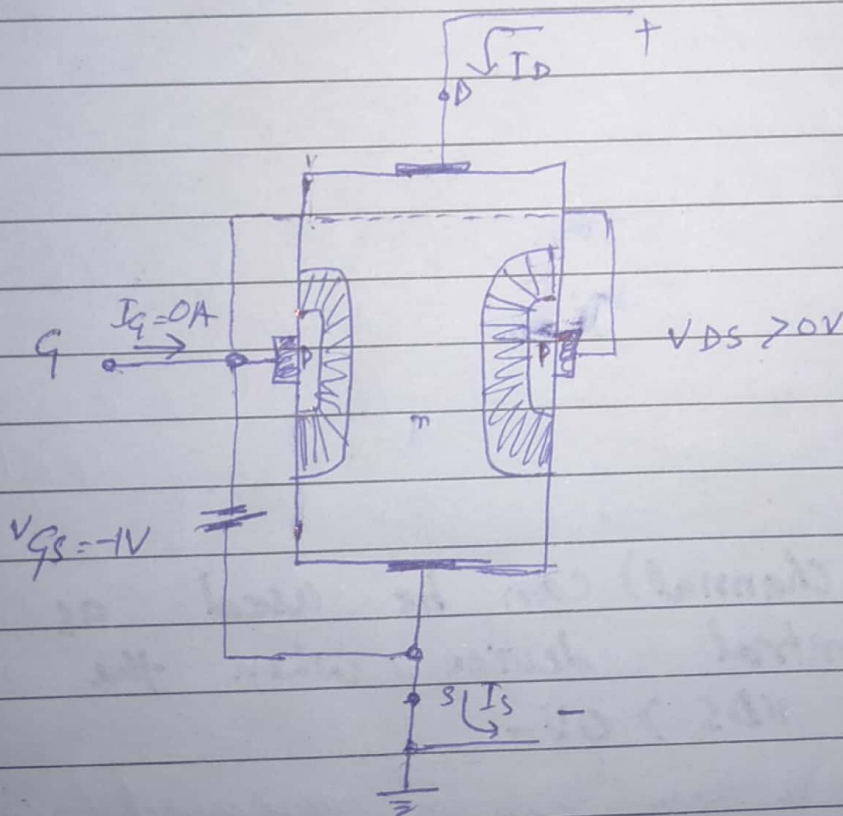 +
I_D
D
I_G=0A
G
P
P
VDS >0V
n
V_GS=-1V
S
I_S
-